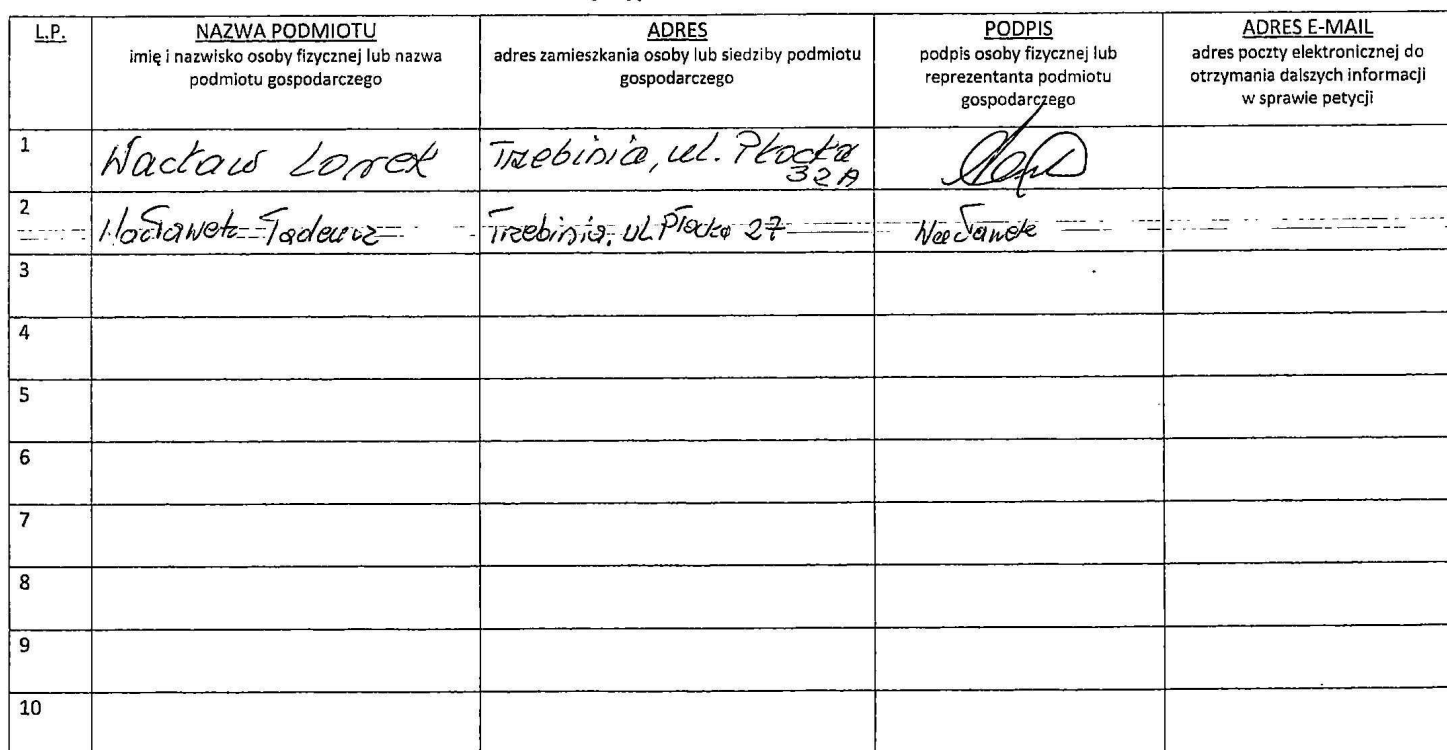 L.P. NAZWA PODMIOTU ADRES PODPIS ADRES E-MAIL
imię i nazwisko osoby fizycznej lub nazwa podmiotu gospodarczego
adres zamieszkania osoby lub siedziby podmiotu gospodarczego
podpis osoby fizycznej lub reprezentanta podmiotu gospodarczego
adres poczty elektronicznej do otrzymania dalszych informacji w sprawie petycji
1 Wacław Lorek Trzebinia, ul. Płocka 32A
2 Wacławek Tadeusz Trzebinia, ul. Płocka 27 Wacławek
3
4
5
6
7
8
9
10